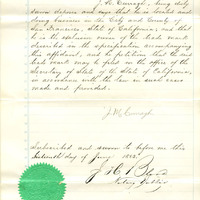 J. M. Curragh, being duly
sworn deposes and says that he is located and
doing business in the City and County of
San Francisco, State of California, and that
he is the claimant owner of the trade mark
described in the specification accompanying
this affidavit, and he petitions that the said
trade mark may be filed in the office of the
Secretary of State of the State of California,
in accordance with the law in such cases
made and provided.
J. M. Curragh
Subscribed and sworn to before me this
day of
Notary Public